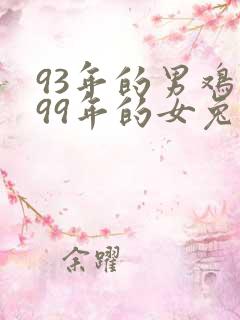 93年的男鸡
99年的女兔
余躍